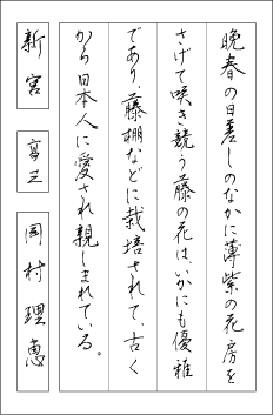 晩春の日差しのなかに薄紫の花房を
さげて咲き競う藤の花は、いかにも優雅
であり、藤棚などに栽培されて、古く
から日本人に愛され親しまれている。
新宮
享芝
岡村理恵